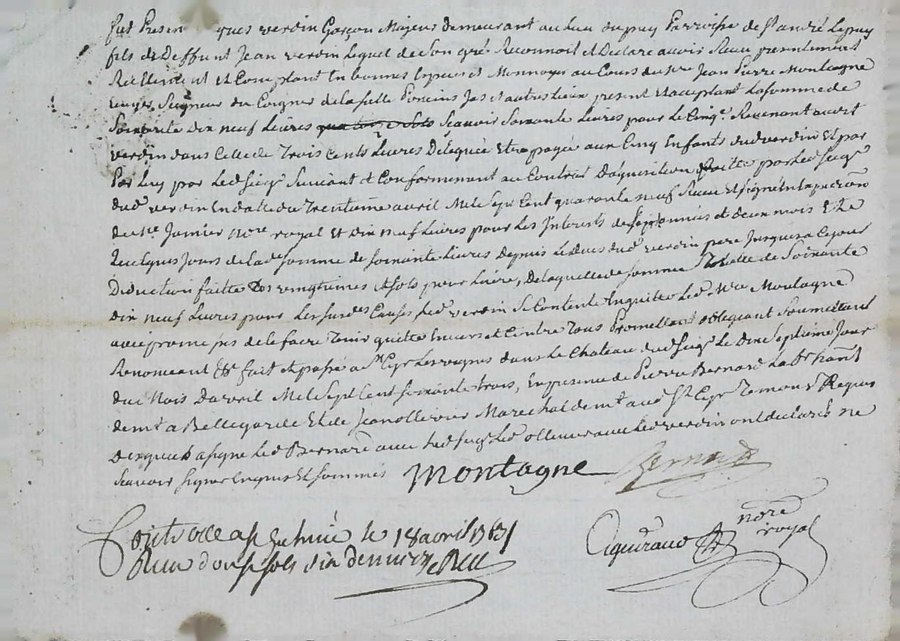 fut Présent ques verdin Garçon Majeur demeurant au Lieu du puy Parroisse de St andré Le puy
fils de Deffunt Jean verdin Lequel de Son gré Reconnoit et Declare avoir Receu presentement
Reellement et Comptant En bonnes Especes et Monnoyes au Cours de Jean Pierre Montagne
Seigneur du Poncins Jas et autres Lieux present et acceptant La Somme de
Soixante dix neuf Livres Scavoir Soixante Livres pour Le Cinq.e Revenant audit
verdin dans Celle de Trois Cents Livres Deleguée Et payée aux Cinq Enfants dud verdin Et par
Par Luy par Led Seig.r Suivant et Conformement au Contrat D'aquisition faitte par Led Seig.r
dud verdin En datte du Trentieme avril Mil Sept Cent quarante neuf Receu Et signé
de Me Jamier Nore royal Et dix neuf Livres pour Les Interets de années et deux mois Et
quelques Jours de La de Somme de Soixante Livres Depuis Le deces dud verdin pere Jusques a Ce jour
Deduction faitte des vingtiemes et Sols pour Livre, De laquelle de Somme Totalle de Soixante
dix neuf Livres pour Les Susdes Causes Led verdin Se Contente En quitte Led Montagne
avec promesses de Le faire Tenir quitte Envers et Contre Tous Promettant obligeant Soumettant
Renonceant &c fait et passé a St Cyr Les vignes dans Le Chateau dud Seig.r Le Dix Septieme Jour
du Mois Davril Mil Sept Cent Soixante trois, En presence de Pierre Bernard habitant
demt a Bellegarde Et de Jean ollivier Marechal demt aud St Cyr Temoins Requis
Desquels a signé Led Bernard avec Led Seig.r Led ollivier avec Led verdin ont declaré ne
Scavoir signer Enquis Et Sommés Montagne Bernard
Controllé a St Galmier le 18 avril 1763
Receu douse sols six deniers
nore royal